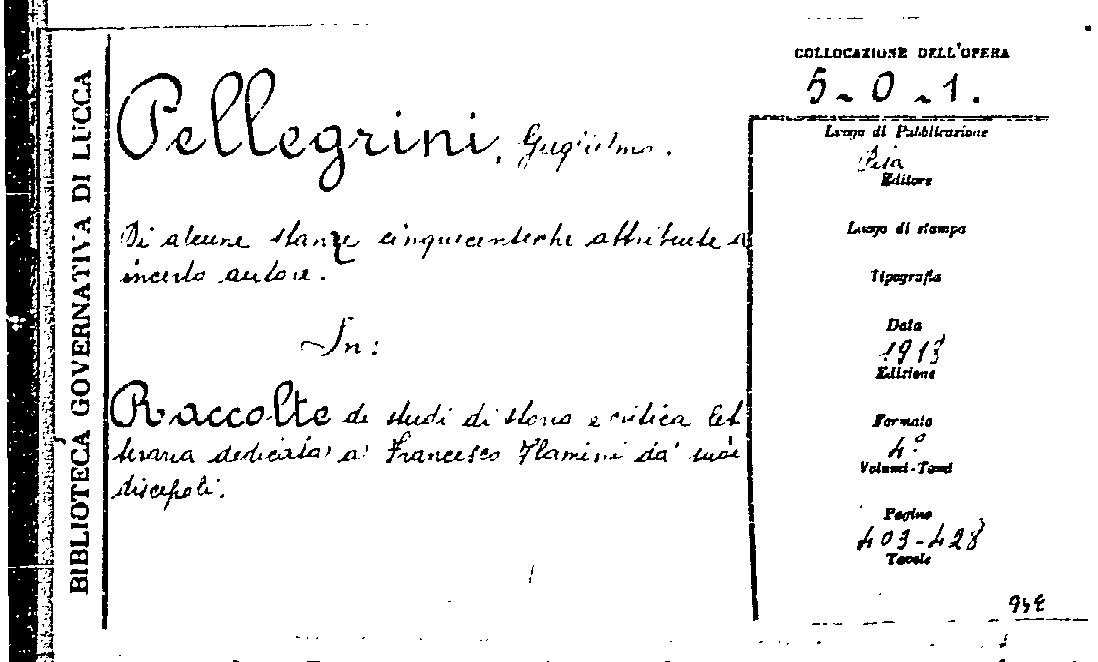 BIBLIOTECA GOVERNATIVA DI LUCCA
Pellegrini, Guglielmo.
Di alcune stanze cinquecentesche attribuite a
incerto autore.
In:
Raccolte di studi di storia e critica let
teraria dedicata a' Francesco Flamini da' suoi
discepoli.
COLLOCAZIONE DELL'OPERA
5-0-1.
Luogo di Pubblicazione
Pisa
Editore
Luogo di stampa
Tipografia
Data
1913
Edizione
Formato
4°
Volumi-Tomi
Pagine
403-428
Tavole